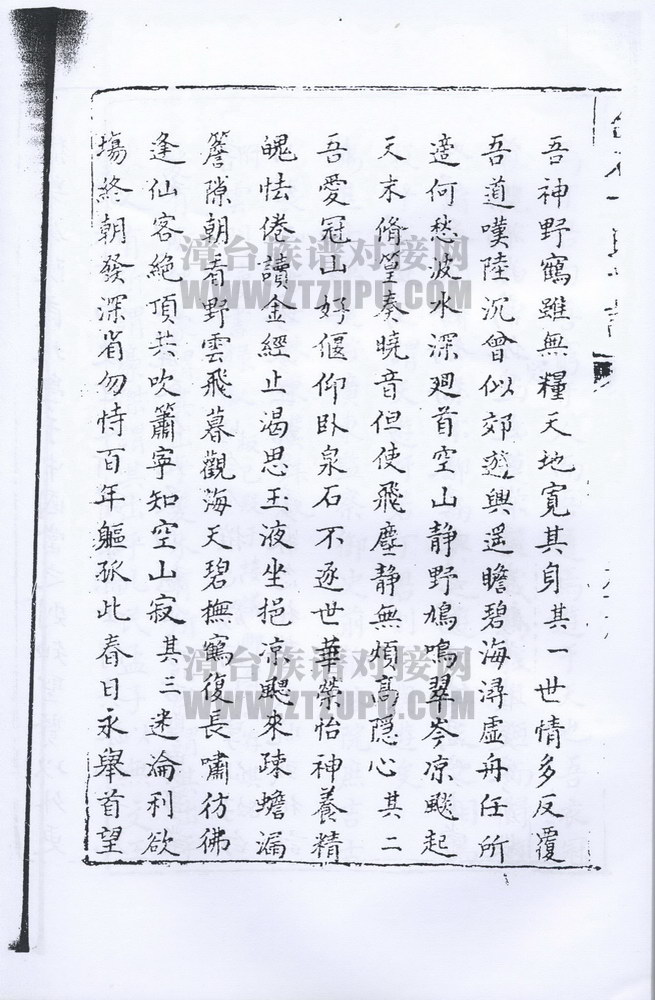 吾神野鶴雖無糧天地寬其身其一世情多反覆
吾道嘆陸沉曾似郊遊興遥瞻碧海潯虛舟任所
適何愁波水深廻首空山静野鳩鳴翠岑凉飈起
天末脩篁奏曉音但使飛塵静無煩高隱心其二
吾愛冠山好偃仰卧泉石不逐世華榮怡神養精
魄怯倦讀金經止渴思玉液坐挹凉颸來疎蟾漏
簷隙朝看野雲飛暮觀海天碧撫鶴復長嘯彷彿
逢仙客絶頂共吹簫寧知空山寂其三迷淪利欲
塲終朝發深省勿恃百年軀孤此春日永舉首望
漳台族谱对接网
WWW.ZTZUPU.COM
漳台族谱对接网
WWW.ZTZUPU.COM